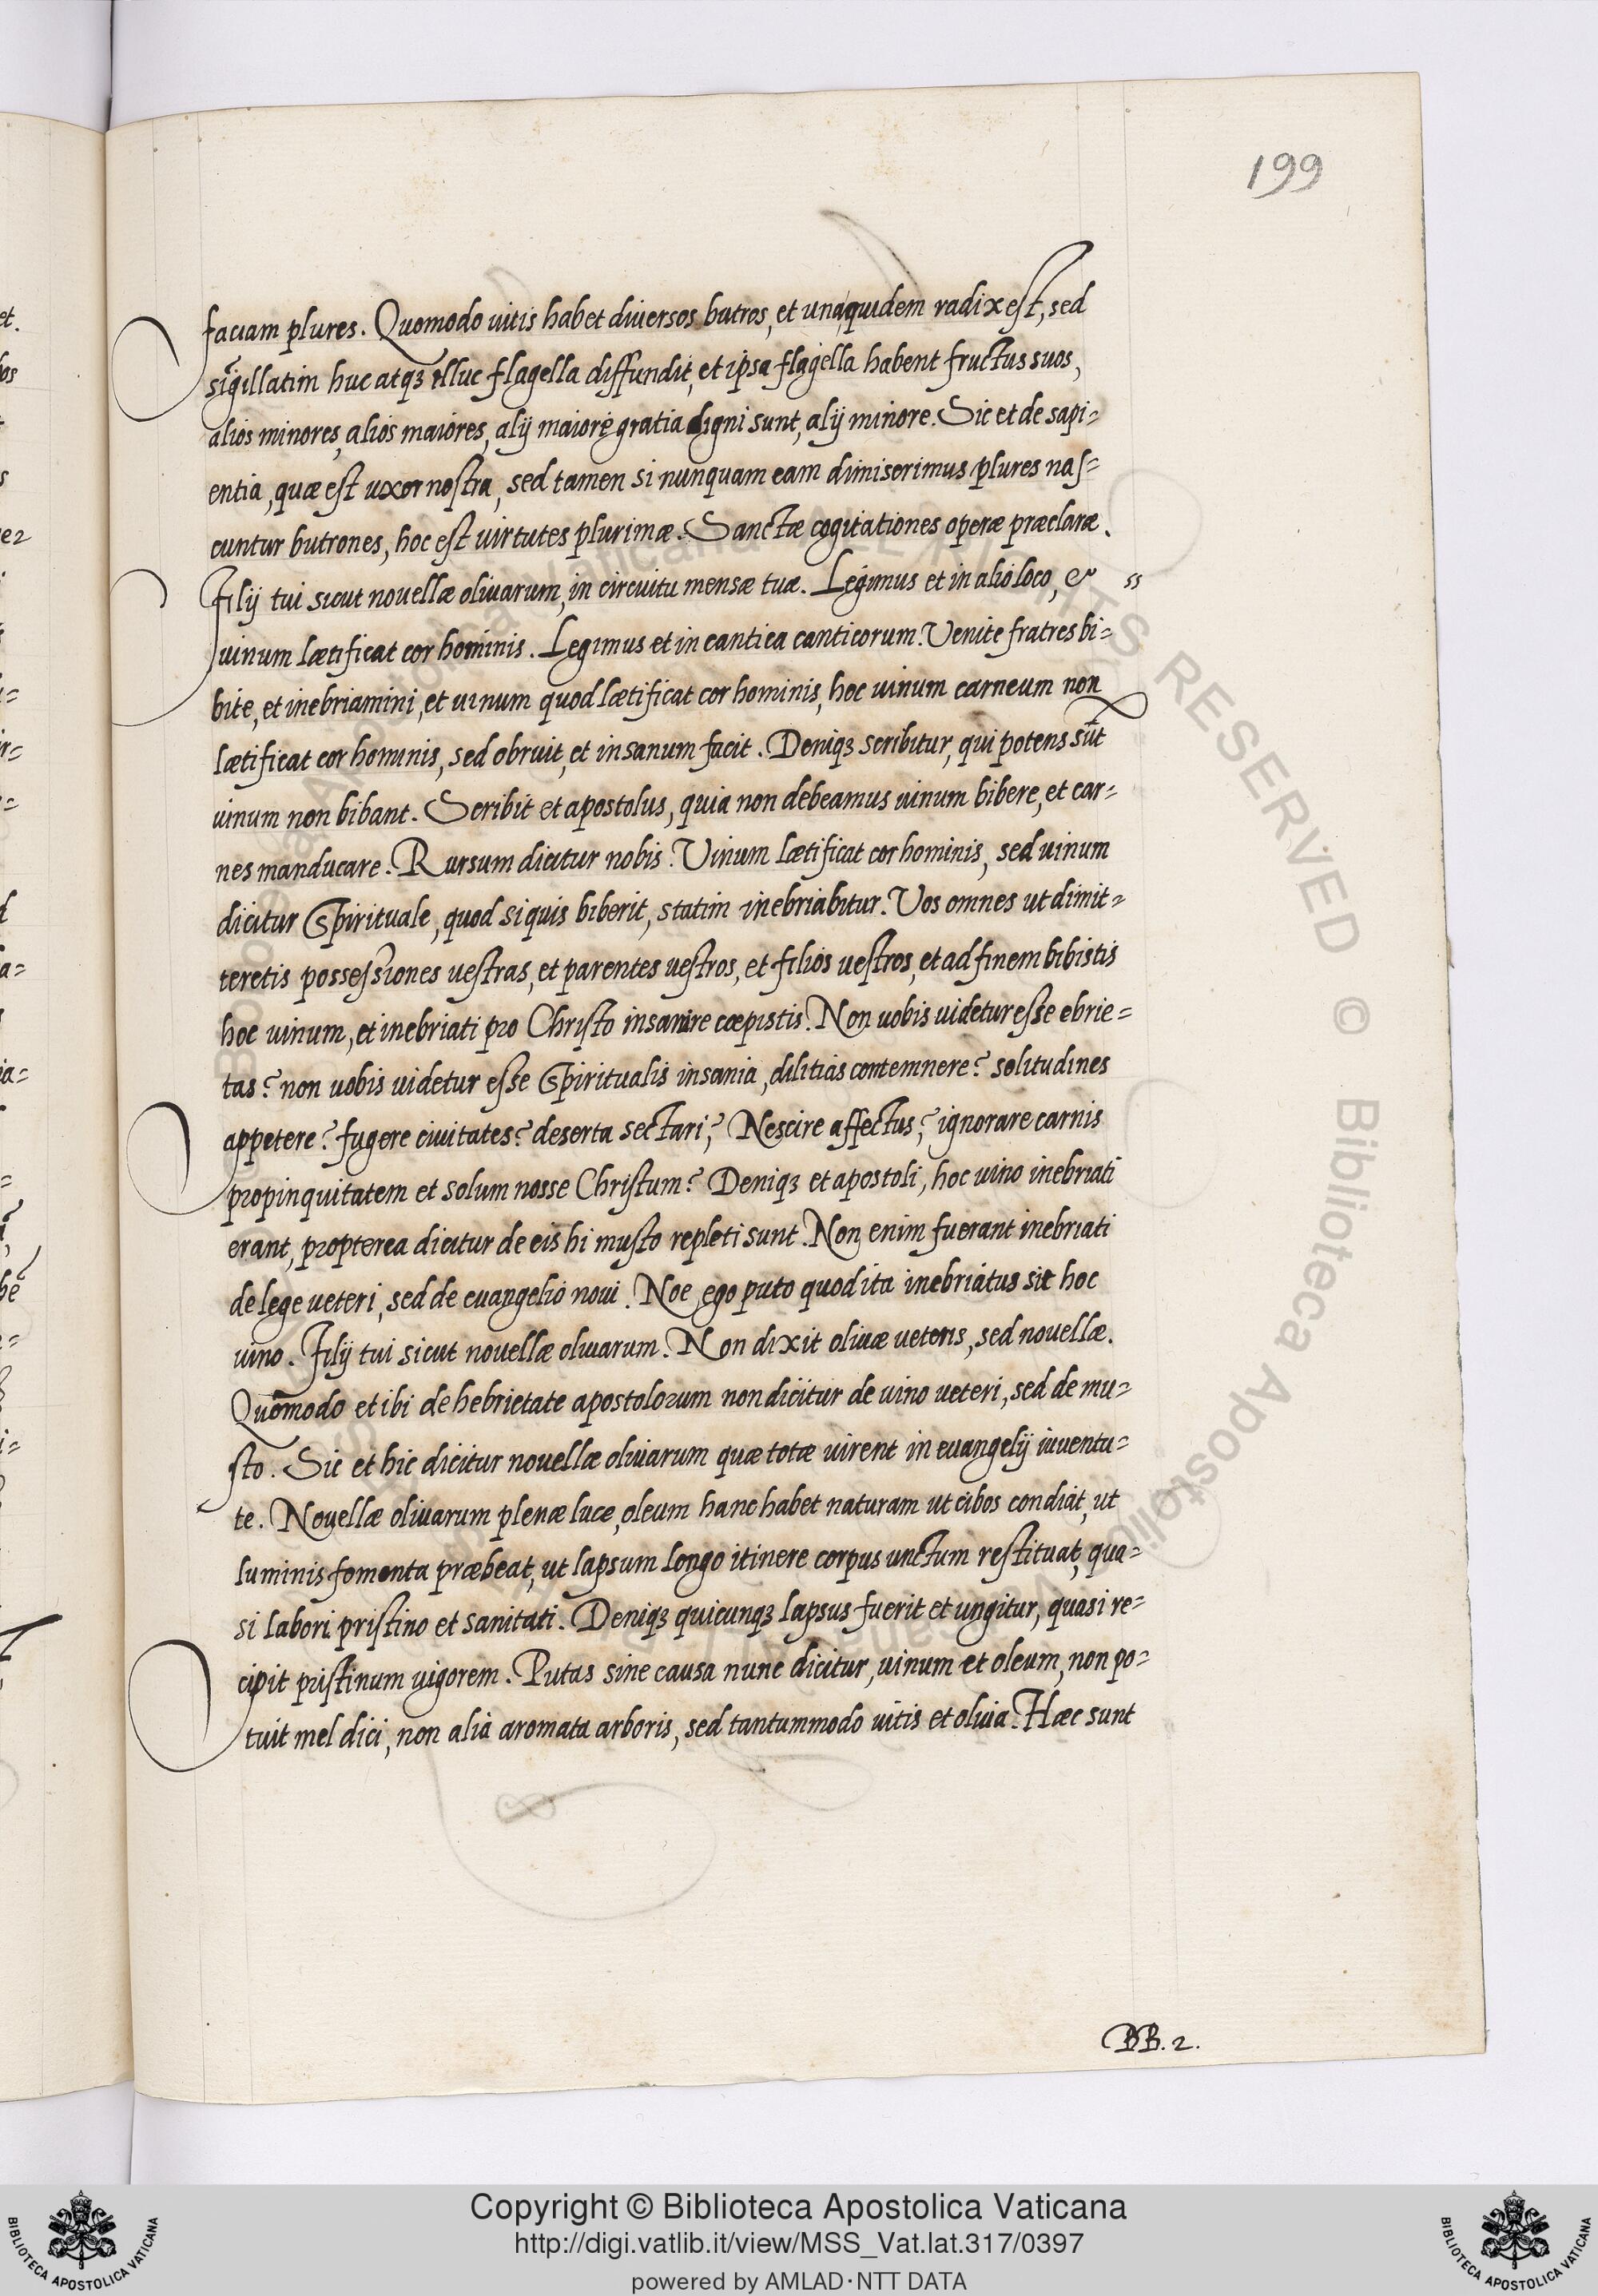 199
faciam plures. Quomodo uitis habet diuersos butros, et una quidem radix est, sed
sigillatim huc atqꝫ illuc flagella diffundit, et ipsa flagella habent fructus suos,
alios minores, alios maiores, alij maiore gratia digni sunt, alij minore. Sic et de sapi=
entia, quæ est uxor nostra, sed tamen si nunquam eam dimiserimus plures nas=
cuntur butrones, hoc est uirtutes plurimæ. Sanctæ cogitationes operæ præclaræ.
Filij tui sicut nouellæ oliuarum, in circuitu mensæ tuæ. Legimus et in alio loco, & ss
uinum lætificat cor hominis. Legimus et in cantica canticorum. Venite fratres bi=
bite, et inebriamini, et uinum quod lætificat cor hominis, hoc uinum carneum non
lætificat cor hominis, sed obruit, et insanum facit. Deniqꝫ scribitur, qui potens sūt
uinum non bibant. Scribit et apostolus, quia non debeamus uinum bibere, et car=
nes manducare. Rursum dicitur nobis. Vinum lætificat cor hominis, sed uinum
dicitur Spirituale, quod siquis biberit, statim inebriabitur. Vos omnes ut dimit=
teretis possessiones uestras, et parentes uestros, et filios uestros, et ad finem bibistis
hoc uinum, et inebriati pro Christo insanire cœpistis. Non uobis uidetur esse ebrie=
tas? non uobis uidetur esse Spiritualis insania, dilitias contemnere? solitudines
appetere? fugere ciuitates? deserta sectari? Nescire affectus? ignorare carnis
propinquitatem et solum nosse Christum? Deniqꝫ et apostoli, hoc uino inebriati
erant, propterea dicitur de eis hi musto repleti sunt. Non enim fuerant inebriati
de lege ueteri, sed de euangelio noui. Noe, ego puto quod ita inebriatus sit hoc
uino. Filij tui sicut nouellæ oliuarum. Non dixit oliuæ ueteris, sed nouellæ.
Quōmodo et ibi de hebrietate apostolorum non dicitur de uino ueteri, sed de mu=
sto. Sic et hic dicitur nouellæ oliuarum quæ totæ uirent in euangelij iuuentu=
te. Nouellæ oliuarum plenæ luce, oleum hanc habet naturam ut cibos condiat, ut
luminis fomenta præbeat, ut lapsum longo itinere corpus unctum restituat, qua=
si labori pristino et sanitati. Deniqꝫ quicunqꝫ lapsus fuerit et ungitur, quasi re=
cipit pristinum uigorem. Putas sine causa nunc dicitur, uinum et oleum, non po=
tuit mel dici, non alia aromata arboris, sed tantummodo uitis et oliua. Hæc sunt
BB. 2.
Copyright © Biblioteca Apostolica Vaticana
http://digi.vatlib.it/view/MSS_Vat.lat.317/0397
powered by AMLAD·NTT DATA
BIBLIOTECA APOSTOLICA VATICANA
BIBLIOTECA APOSTOLICA VATICANA